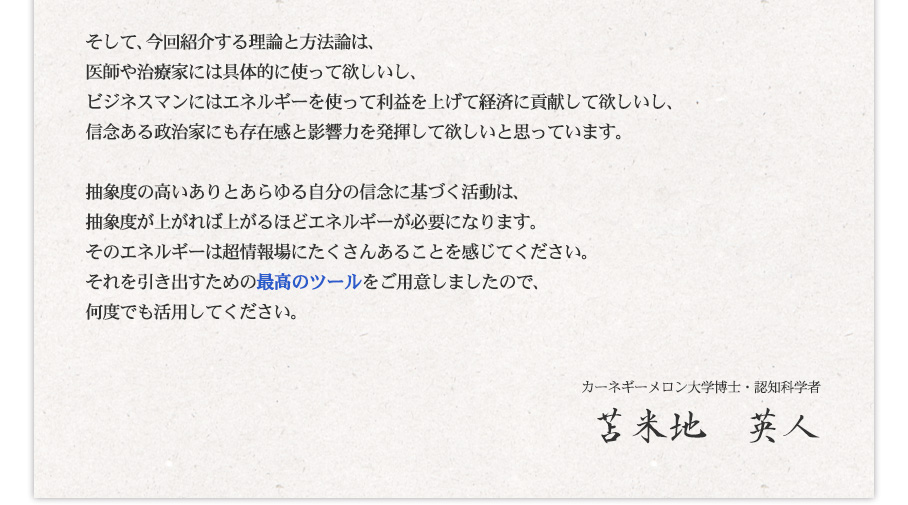 そして、今回紹介する理論と方法論は、
医師や治療家には具体的に使って欲しいし、
ビジネスマンにはエネルギーを使って利益を上げて経済に貢献して欲しいし、
信念ある政治家にも存在感と影響力を発揮して欲しいと思っています。
抽象度の高いありとあらゆる自分の信念に基づく活動は、
抽象度が上がれば上がるほどエネルギーが必要になります。
そのエネルギーは超情報場にたくさんあることを感じてください。
それを引き出すための最高のツールをご用意しましたので、
何度でも活用してください。
カーネギーメロン大学博士・認知科学者
苫米地 英人